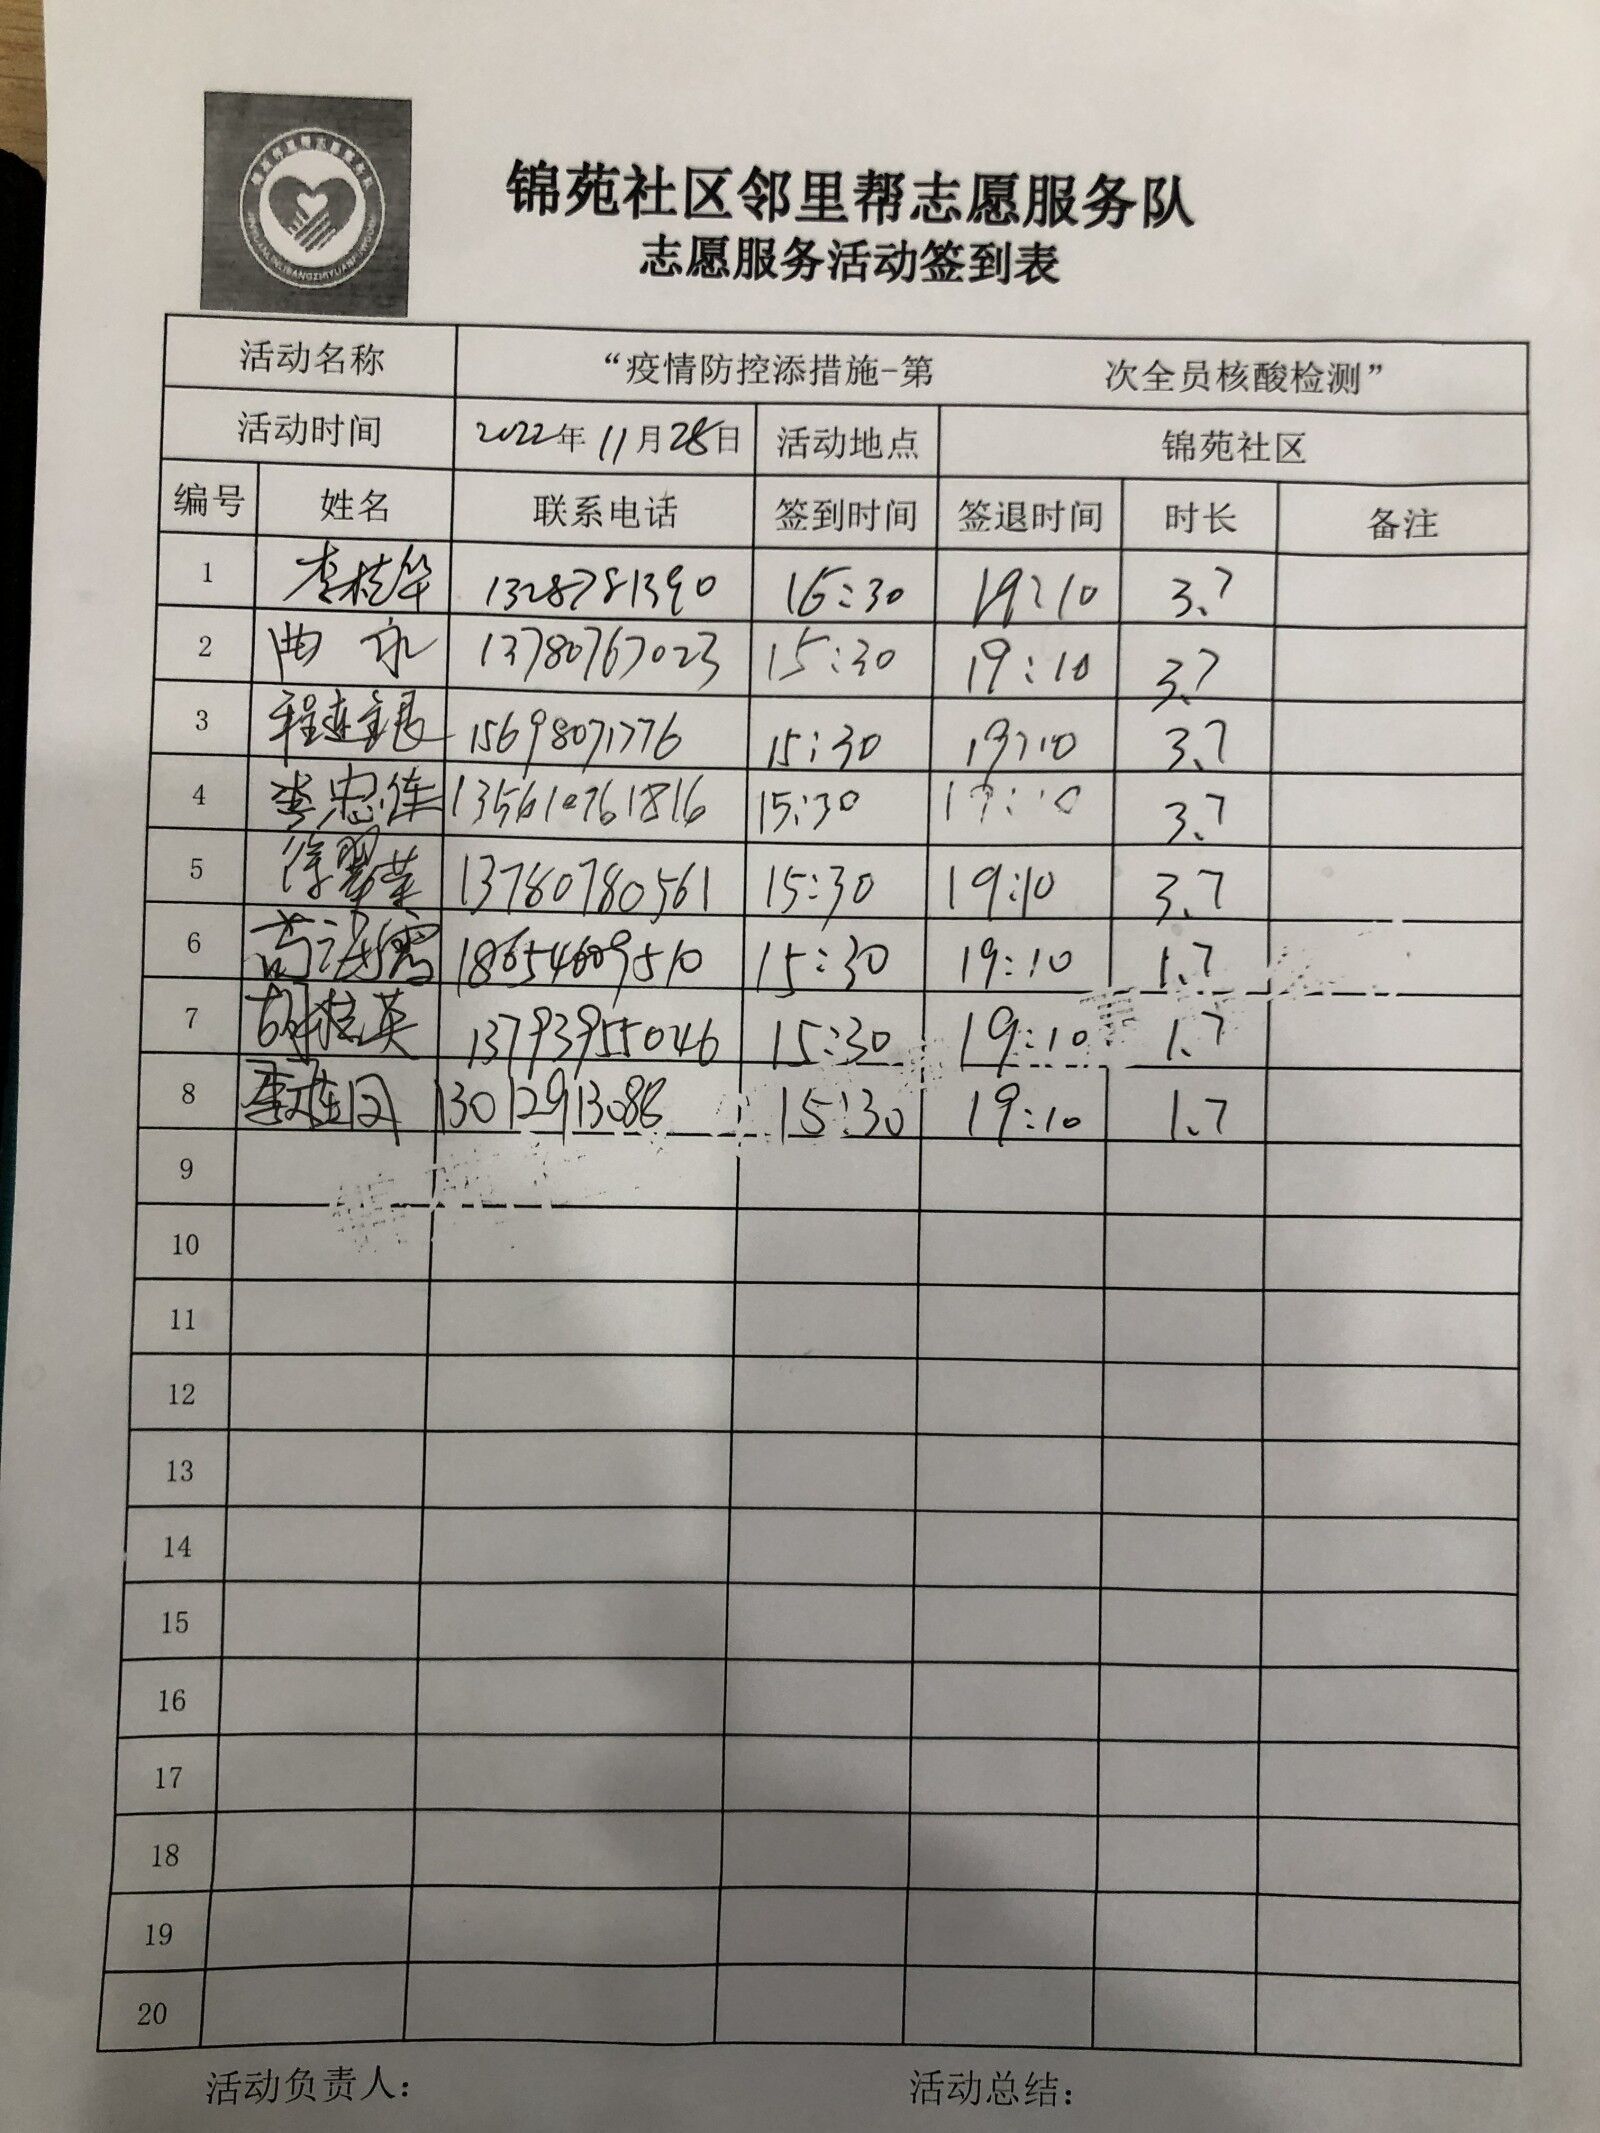 锦苑社区邻里帮志愿服务队
志愿服务活动签到表
活动名称 “疫情防控添措施-第 次全员核酸检测”
活动时间 2022年11月28日 活动地点 锦苑社区
编号 姓名 联系电话 签到时间 签退时间 时长 备注
1 李桂华 1328781390 15:30 19:10 3.7
2 曲永 13780767023 15:30 19:10 3.7
3 15698071776 15:30 19:10 3.7
4 李忠莲 135610761816 15:30 19:10 3.7
5 徐翠荣 13780780561 15:30 19:10 3.7
6 18654609510 15:30 19:10 1.7
7 胡桂英 13793955046 15:30 19:10 1.7
8 13012913088 15:30 19:10 1.7
9
10
11
12
13
14
15
16
17
18
19
20
活动负责人： 活动总结：